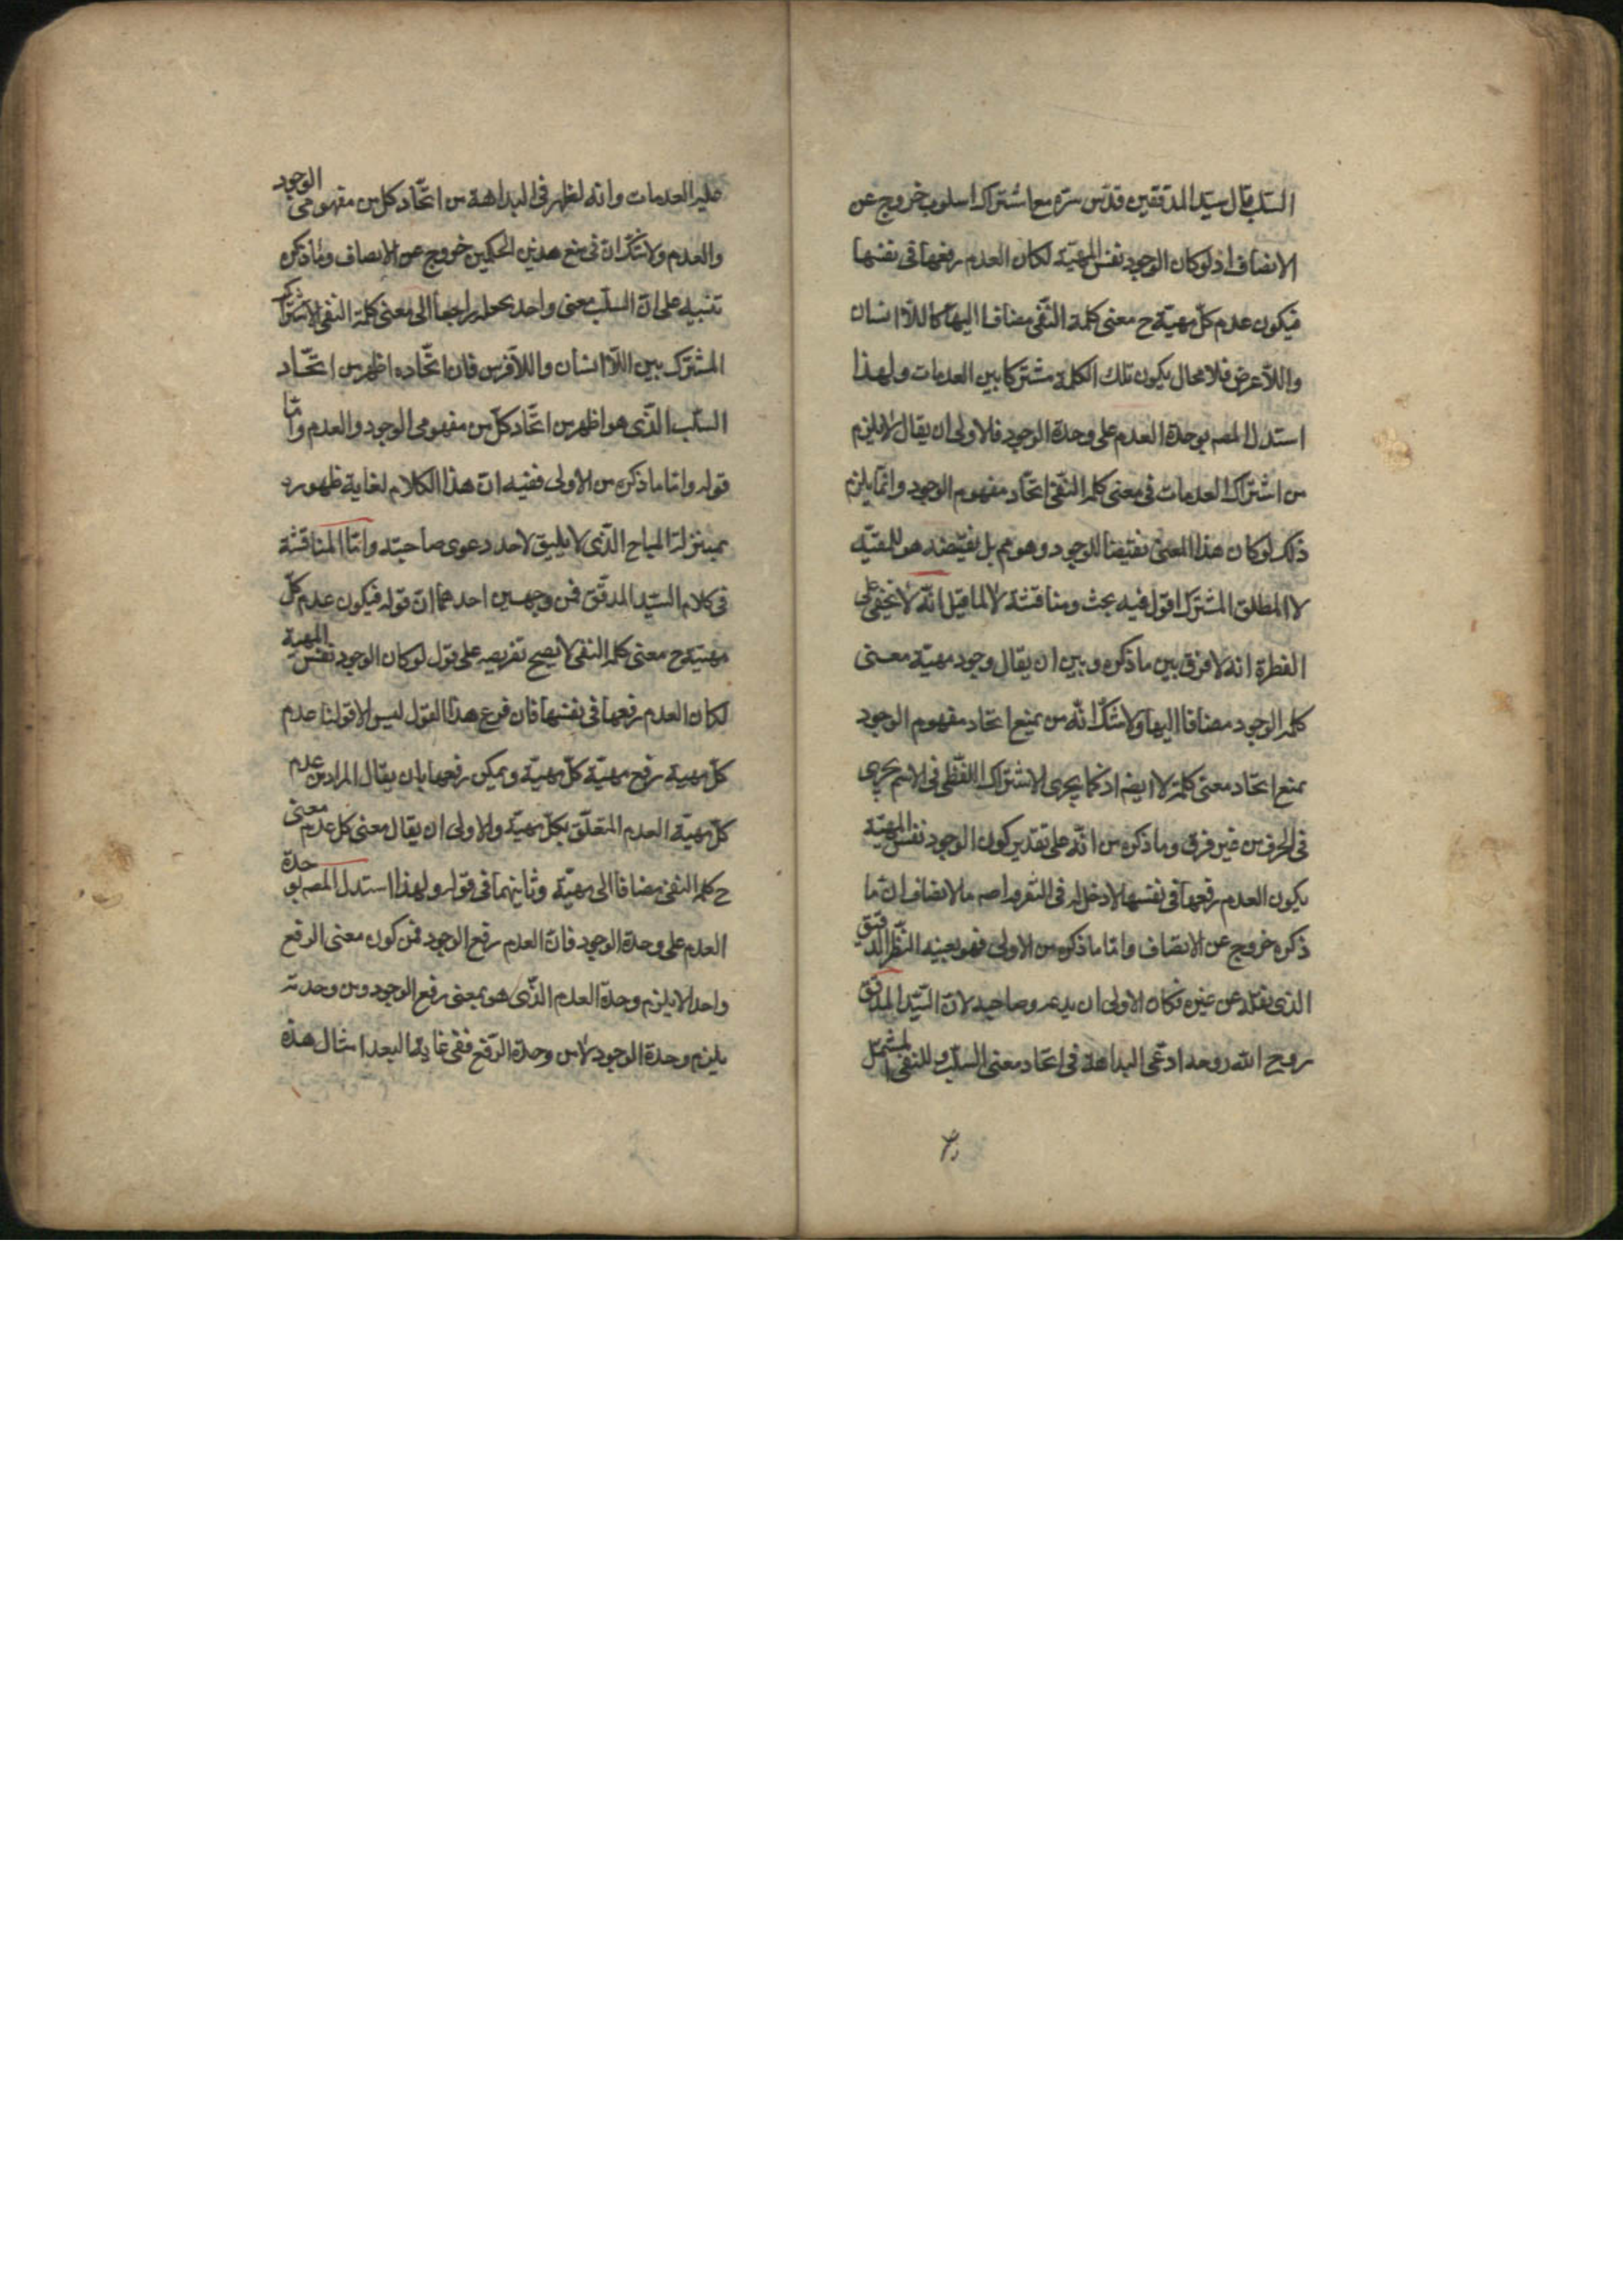 السلب قال سيد المدققين قدس سره مع اشتراك اسلوب خروج عن
الانصاف اذ لو كان الوجود نفس المهية لكان العدم رفعها في نفسها
فيكون عدم كل مهية ح معنى كلمة النفي مضافا اليها كاللاانسان
واللاعرض فلا محال يكون تلك الكلمة مشتركا بين العدمات ولهذا
استدل المصـ بوحدة العدم على وحدة الوجود فلاولى ان يقال لا يلزم
من اشتراك العدمات في معنى كلمة النفي اتحاد مفهوم الوجود وانما يلزم
ذلك لو كان هذا المعنى نقيضا للوجود وهو مم بل نقيضه هو للمقيد
لا المطلق المشترك اقول فيه بحث ومناقشة لا لما قيل انه لا يخفى على
الفطرة انه لا فرق بين ما ذكره وبين ان يقال وجود مهية معنى
كلمة الوجود مضافا اليها ولا شك انه من يمنع اتحاد مفهوم الوجود
يمنع اتحاد معنى كلمة لا ايضا اذ كما يجرى الاشتراك اللفظي في الاسم يجرى
في الحرف من غير فرق وما ذكره من انه على تقدير كون الوجود نفس المهية
يكون العدم رفعها في نفسها لا دخل له في التفرقة اصـ فالانصاف ان ما
ذكره خروج عن الانصاف واما ما ذكره من الاولى فهو بعينه النظر الدقيق
الذي نقله عن غيره فكان الاولى ان يدعه وصاحبه لان السيد المدقق
روح الله روحه ادعى البداهة في اتحاد معنى السلب والنفي المشتمل
عليه العدمات وانه لظهر في البداهة من اتحاد كل من مفهومي الوجود
والعدم ولا شك ان في منع هذين الحكمين خروج عن الانصاف وما ذكره
تنبيه على ان السلب معنى واحد بجعله راجعا الى معنى كلمة النفي الاشتراك
المشترك بين اللاانسان واللافرس فان اتحاده اظهر من اتحاد
السلب الذي هو اظهر من اتحاد كل من مفهومي الوجود والعدم واما
قوله واما ما ذكره من الاولى ففيه ان هذا الكلام لغاية ظهوره
بمنزلة المباح الذي لا يليق لاحد دعوى صاحبته واما المناقشة
في كلام السيد المدقق فمن وجهين احدهما ان قوله فيكون عدم كل
مهية ح معنى كلمة النفي لا يصح تفريعه على قول لو كان الوجود نفس المهية
لكان العدم رفعها في نفسها فان فرع هذا القول ليس الا قولنا عدم
كل مهية رفع مهية كل مهية ويمكن رفعها بان يقال المراد من عدم
كل مهية العدم المتعلق بكل مهية والاولى ان يقال معنى كل عدم معنى
ح كلمة النفي مضافا الى مهية وثانيهما في قوله ولهذا استدل المصـ بوحدة
العدم على وحدة الوجود فان العدم رفع الوجود فمن كون معنى الرفع
واحدا لا يلزم وحدة العدم الذي هو بمعنى رفع الوجود ومن وحدته
يلزم وحدة الوجود لا من وحدة الرفع ففي غاية البعد امثال هذه